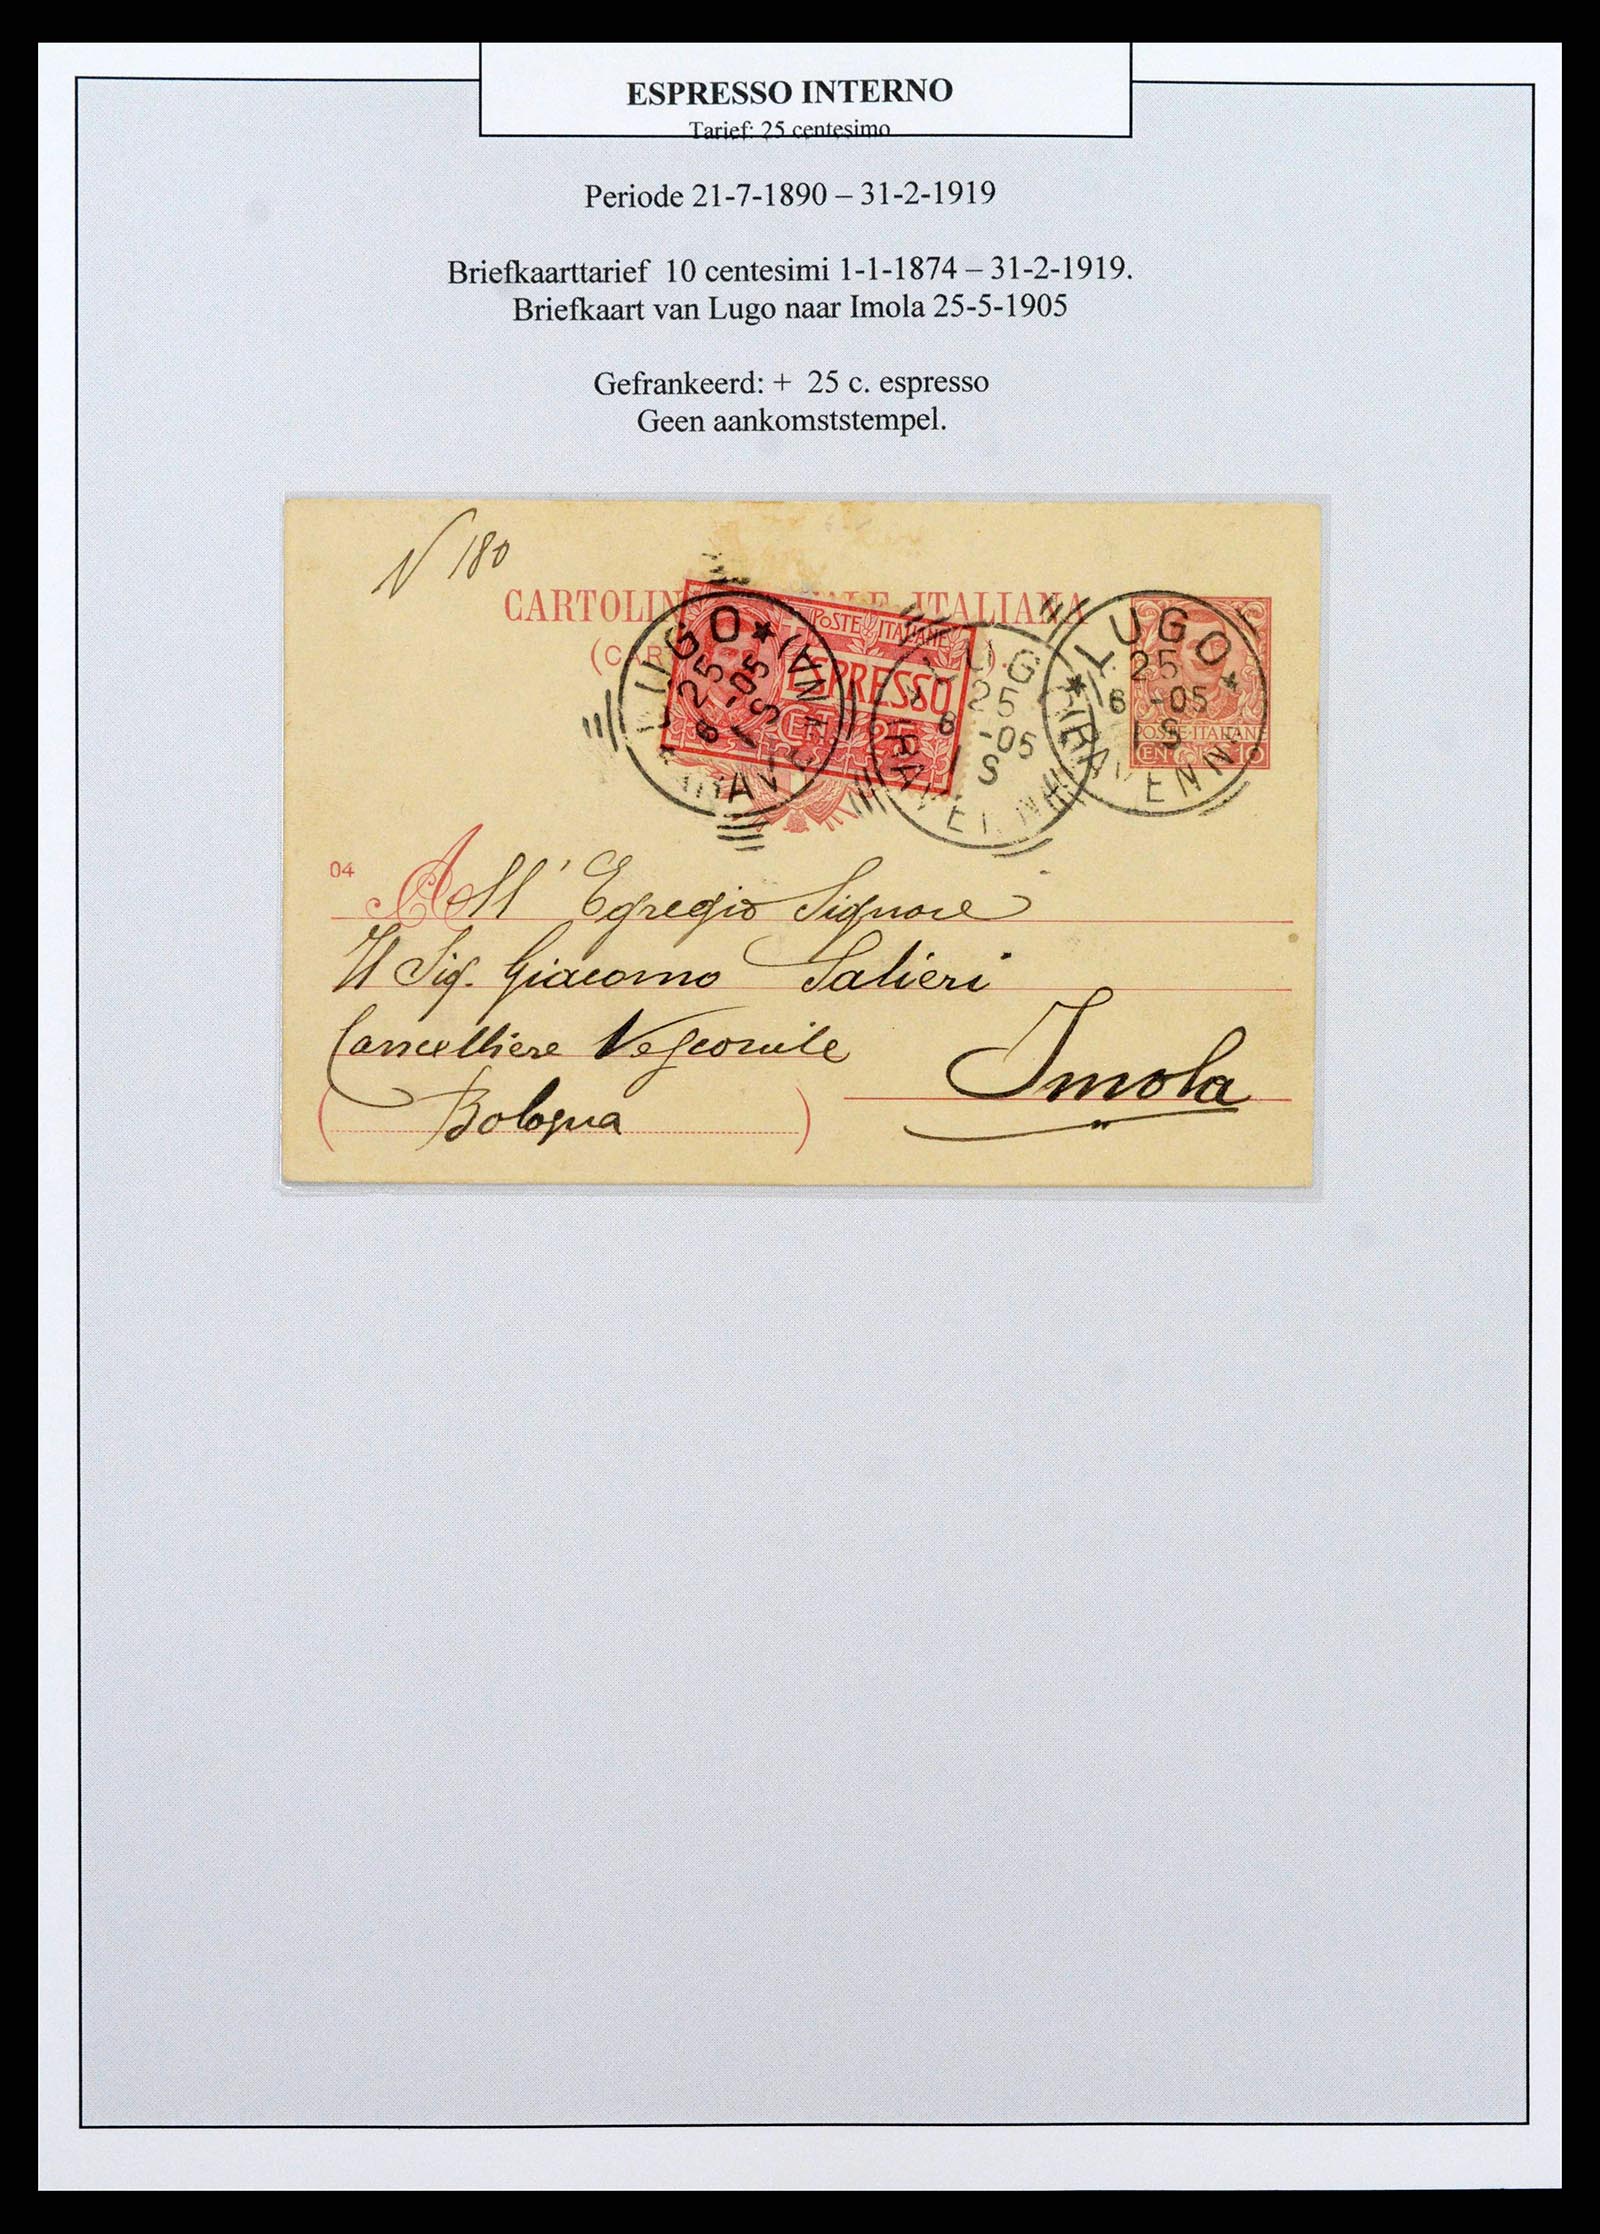 ESPRESSO INTERNO
Tarief: 25 centesimo
Periode 21-7-1890 – 31-2-1919
Briefkaarttarief 10 centesimi 1-1-1874 – 31-2-1919.
Briefkaart van Lugo naar Imola 25-5-1905
Gefrankeerd: + 25 c. espresso
Geen aankomststempel.
N 180
CARTOLIN ALE ITALIANA
(CAR
POSTE ITALIANE
ESPRESSO
CENT 25
LUGO
25
6 -05
1 S
(RAVENNA)
LUG
25
6 -05
S
RAVENN
LUGO
25
6 -05
1 S
(RAVENN
POSTE·ITALIANE
CENT 10
04
All' Egregio Signore
Il Sig. Giacomo Salieri
Cancelliere Vescovile
Imola
(Bologna)